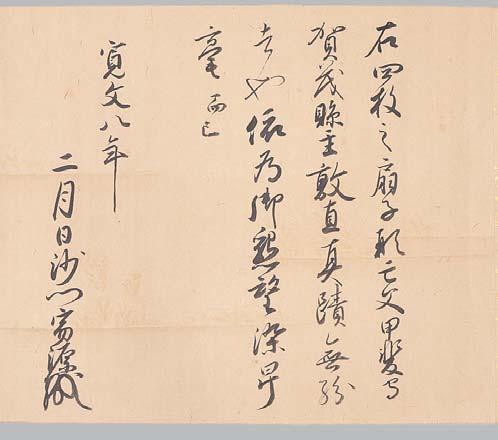 右四枚之扇子形亡父甲斐守
賀茂縣主敦直真蹟無紛
者也依為御懇望染早
毫而已
寛文八年
二月日沙門